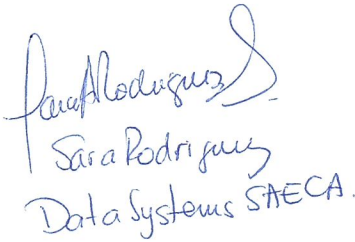 SaraRodriguez S.
Sara Rodriguez
Data Systems SAECA.